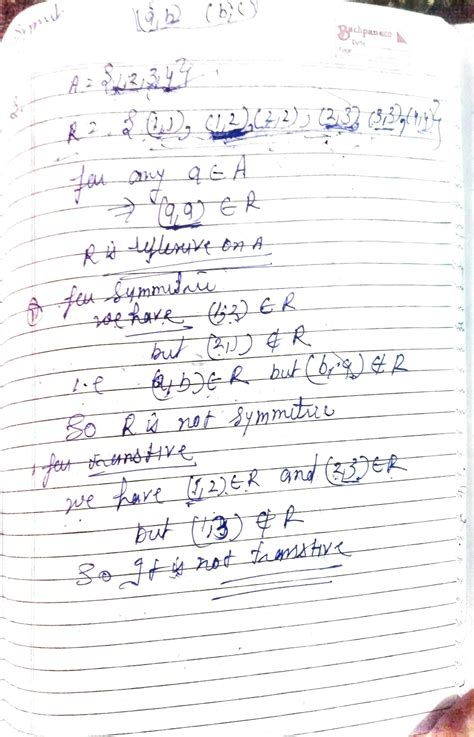 (a,b) (b,c)
Bachpan
Date
Page
A = {1,2,3,4}
R = {(1,1), (1,2), (2,2), (2,3), (3,3), (4,4)}
for any a ∈ A
⇒ (a,a) ∈ R
R is reflexive on A
for Symmetric
we have (1,2) ∈ R
but (2,1) ∉ R
i.e (a,b) ∈ R but (b,a) ∉ R
So R is not Symmetric
for transtive
we have (1,2) ∈ R and (2,3) ∈ R
but (1,3) ∉ R
So It is not transtive